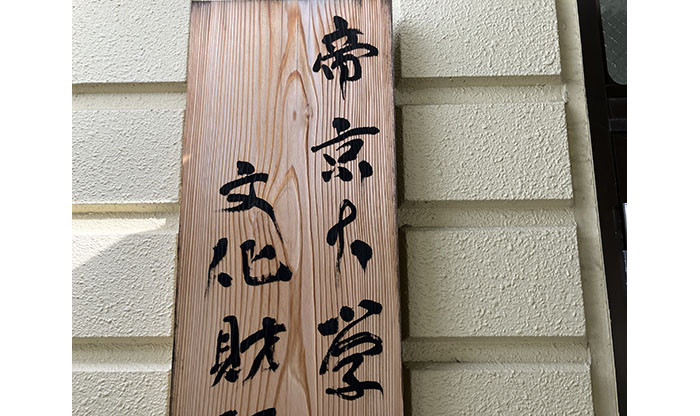 帝京大学
文化財